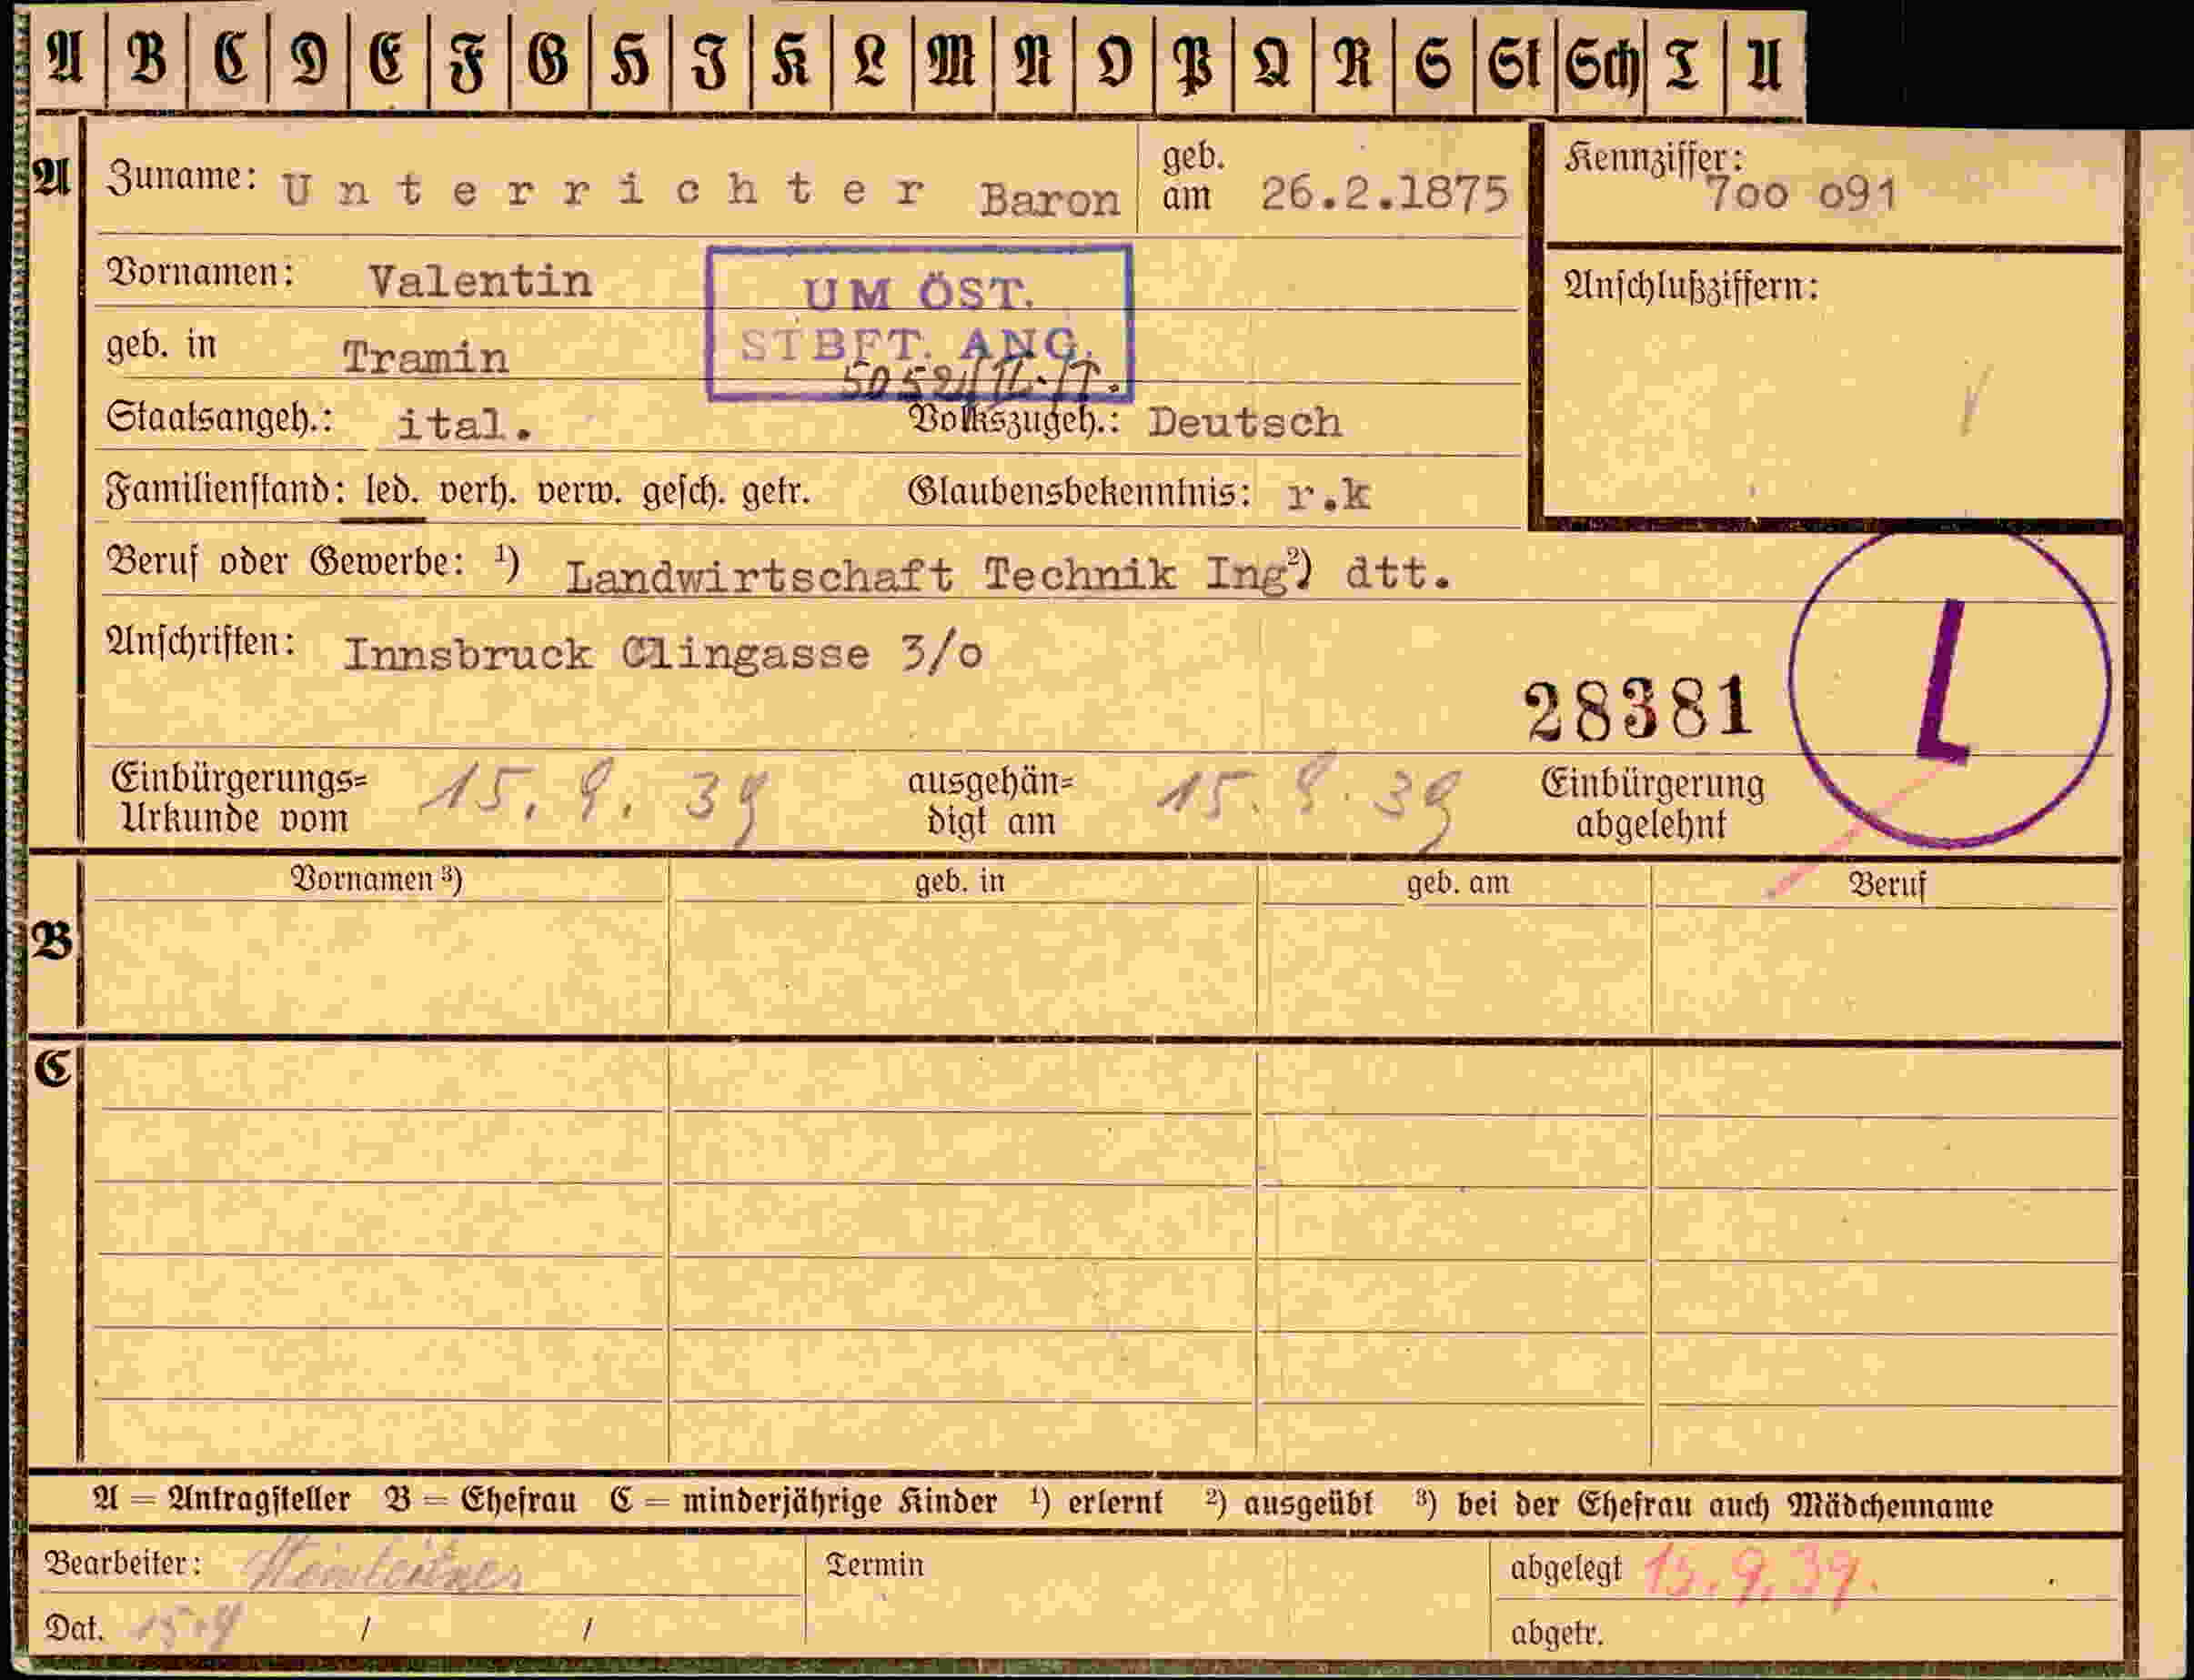 A B C D E F G H I K L M N O P Q R S St Sch T U
A Zuname: Unterrichter Baron geb. am 26.2.1875 Kennziffer: 7oo o91
Vornamen: Valentin UM ÖST. Anschlußziffern:
geb. in Tramin STBFT. ANG.
Staatsangeh.: ital. Volkszugeh.: Deutsch
Familienstand: led. verh. verw. gesch. getr. Glaubensbekenntnis: r.k
Beruf oder Gewerbe: ¹) Landwirtschaft Technik Ing ²) dtt.
Anschriften: Innsbruck Clingasse 3/o
28381 L
Einbürgerungs= Urkunde vom 15. 9. 39 ausgehän= digt am 15. 9. 39 Einbürgerung abgelehnt
Vornamen ³) geb. in geb. am Beruf
B
C
A = Antragsteller B = Ehefrau C = minderjährige Kinder ¹) erlernt ²) ausgeübt ³) bei der Ehefrau auch Mädchenname
Bearbeiter: Termin abgelegt 15.9.39.
Dat. 15.9 / / abgetr.